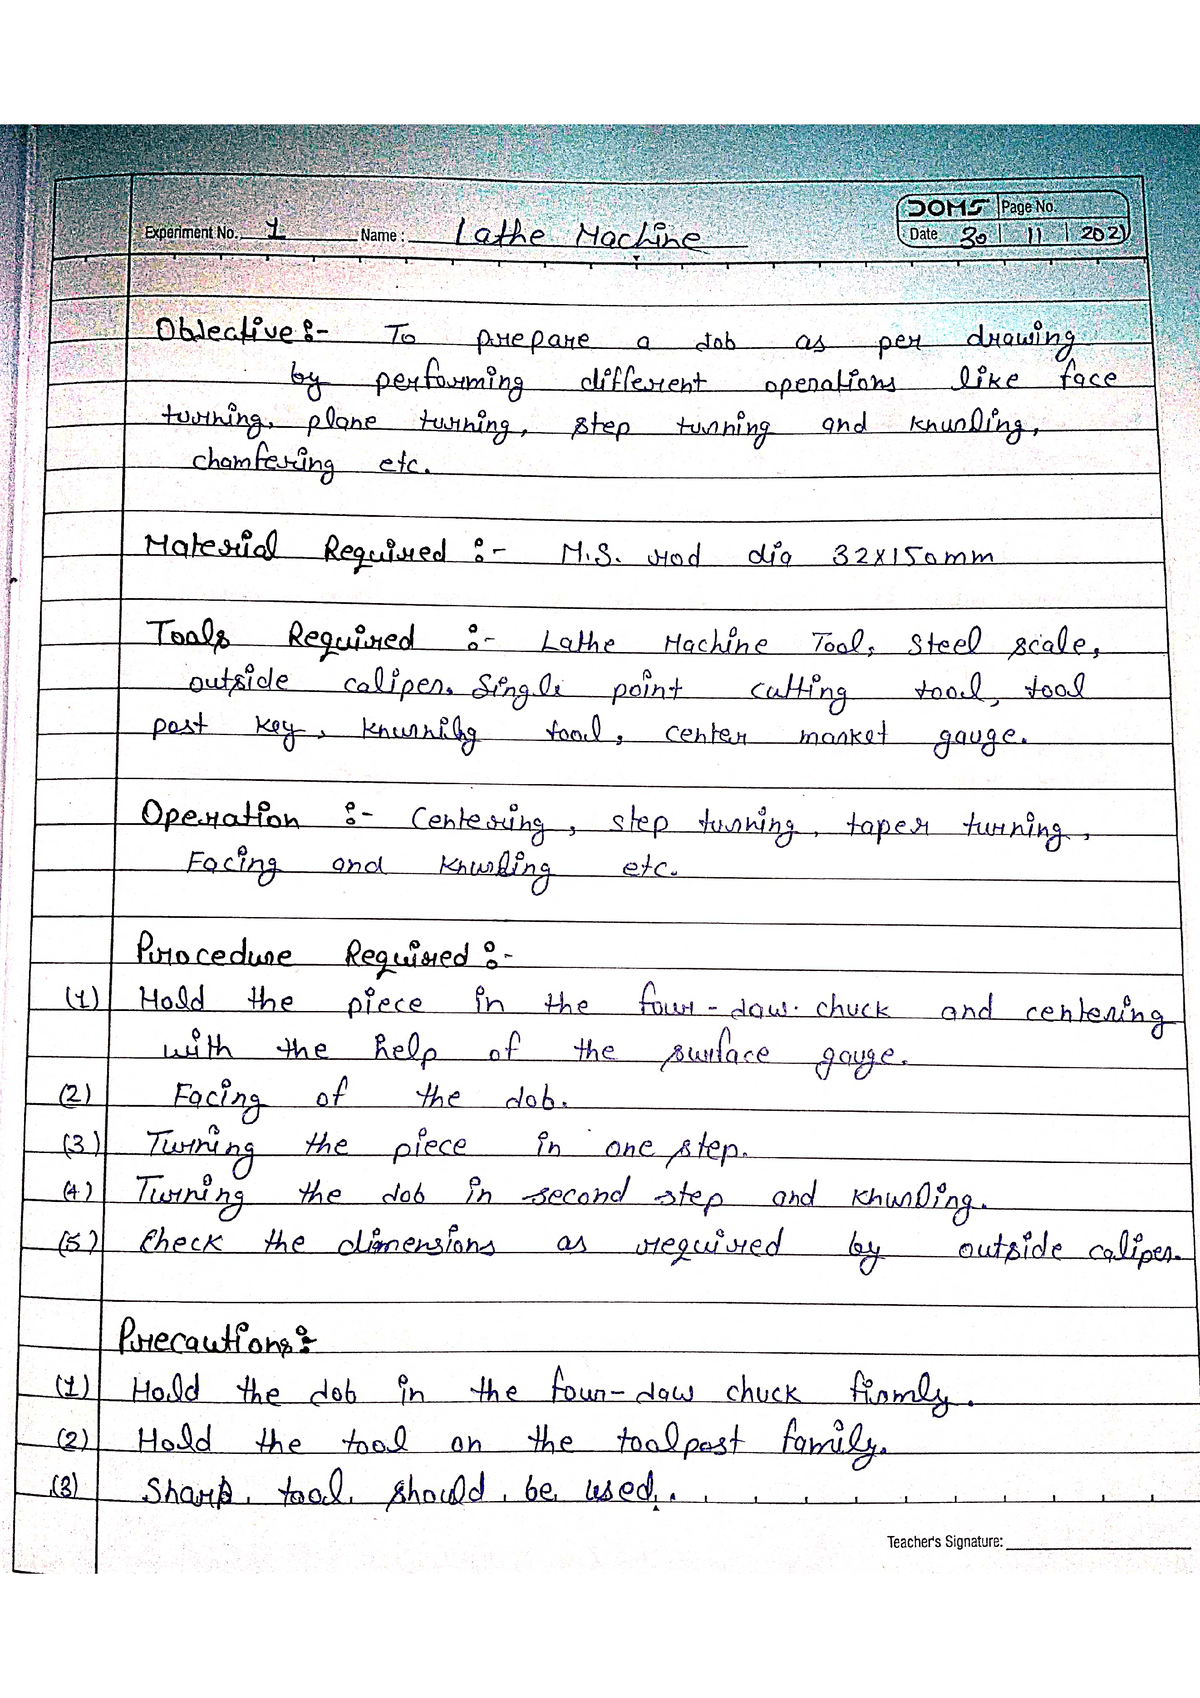 DOMS Page No.
Experiment No. 1 Name : Lathe Machine Date 30 11 2021
Objective :- To prepare a Job as per drawing
by performing different operations like face
turning, plane turning, step turning and knurling,
chamfering etc.
Material Required :- M.S. rod dia 32x150mm
Tools Required :- Lathe Machine Tool, Steel scale,
outside caliper. Single point cutting tool, tool
post key, knurnihg tool, center market gauge.
Operation :- Centering, step turning, taper turning,
Facing and knurling etc.
Procedure Required :-
(1) Hold the piece in the four-Jaw. chuck and centering
with the help of the surface gauge.
(2) Facing of the Job.
(3) Turning the piece in one step.
(4) Turning the Job in second step and knurling.
(5) Check the dimensions as required by outside caliper.
Precautions :-
(1) Hold the Job in the four-Jaw chuck firmly.
(2) Hold the tool on the toolpost family.
(3) Sharp tool should be used.
Teacher's Signature: